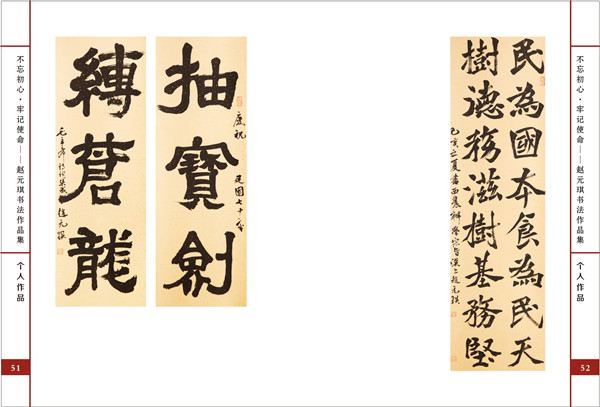 不忘初心·牢记使命——赵元琪书法作品集
个人作品
51
抽寶劍
慶祝
建國七十年
縛蒼龍
趙元琪
民為國本食為民天
樹德務滋樹基務堅
己亥之夏書
趙元琪
不忘初心·牢记使命——赵元琪书法作品集
个人作品
52